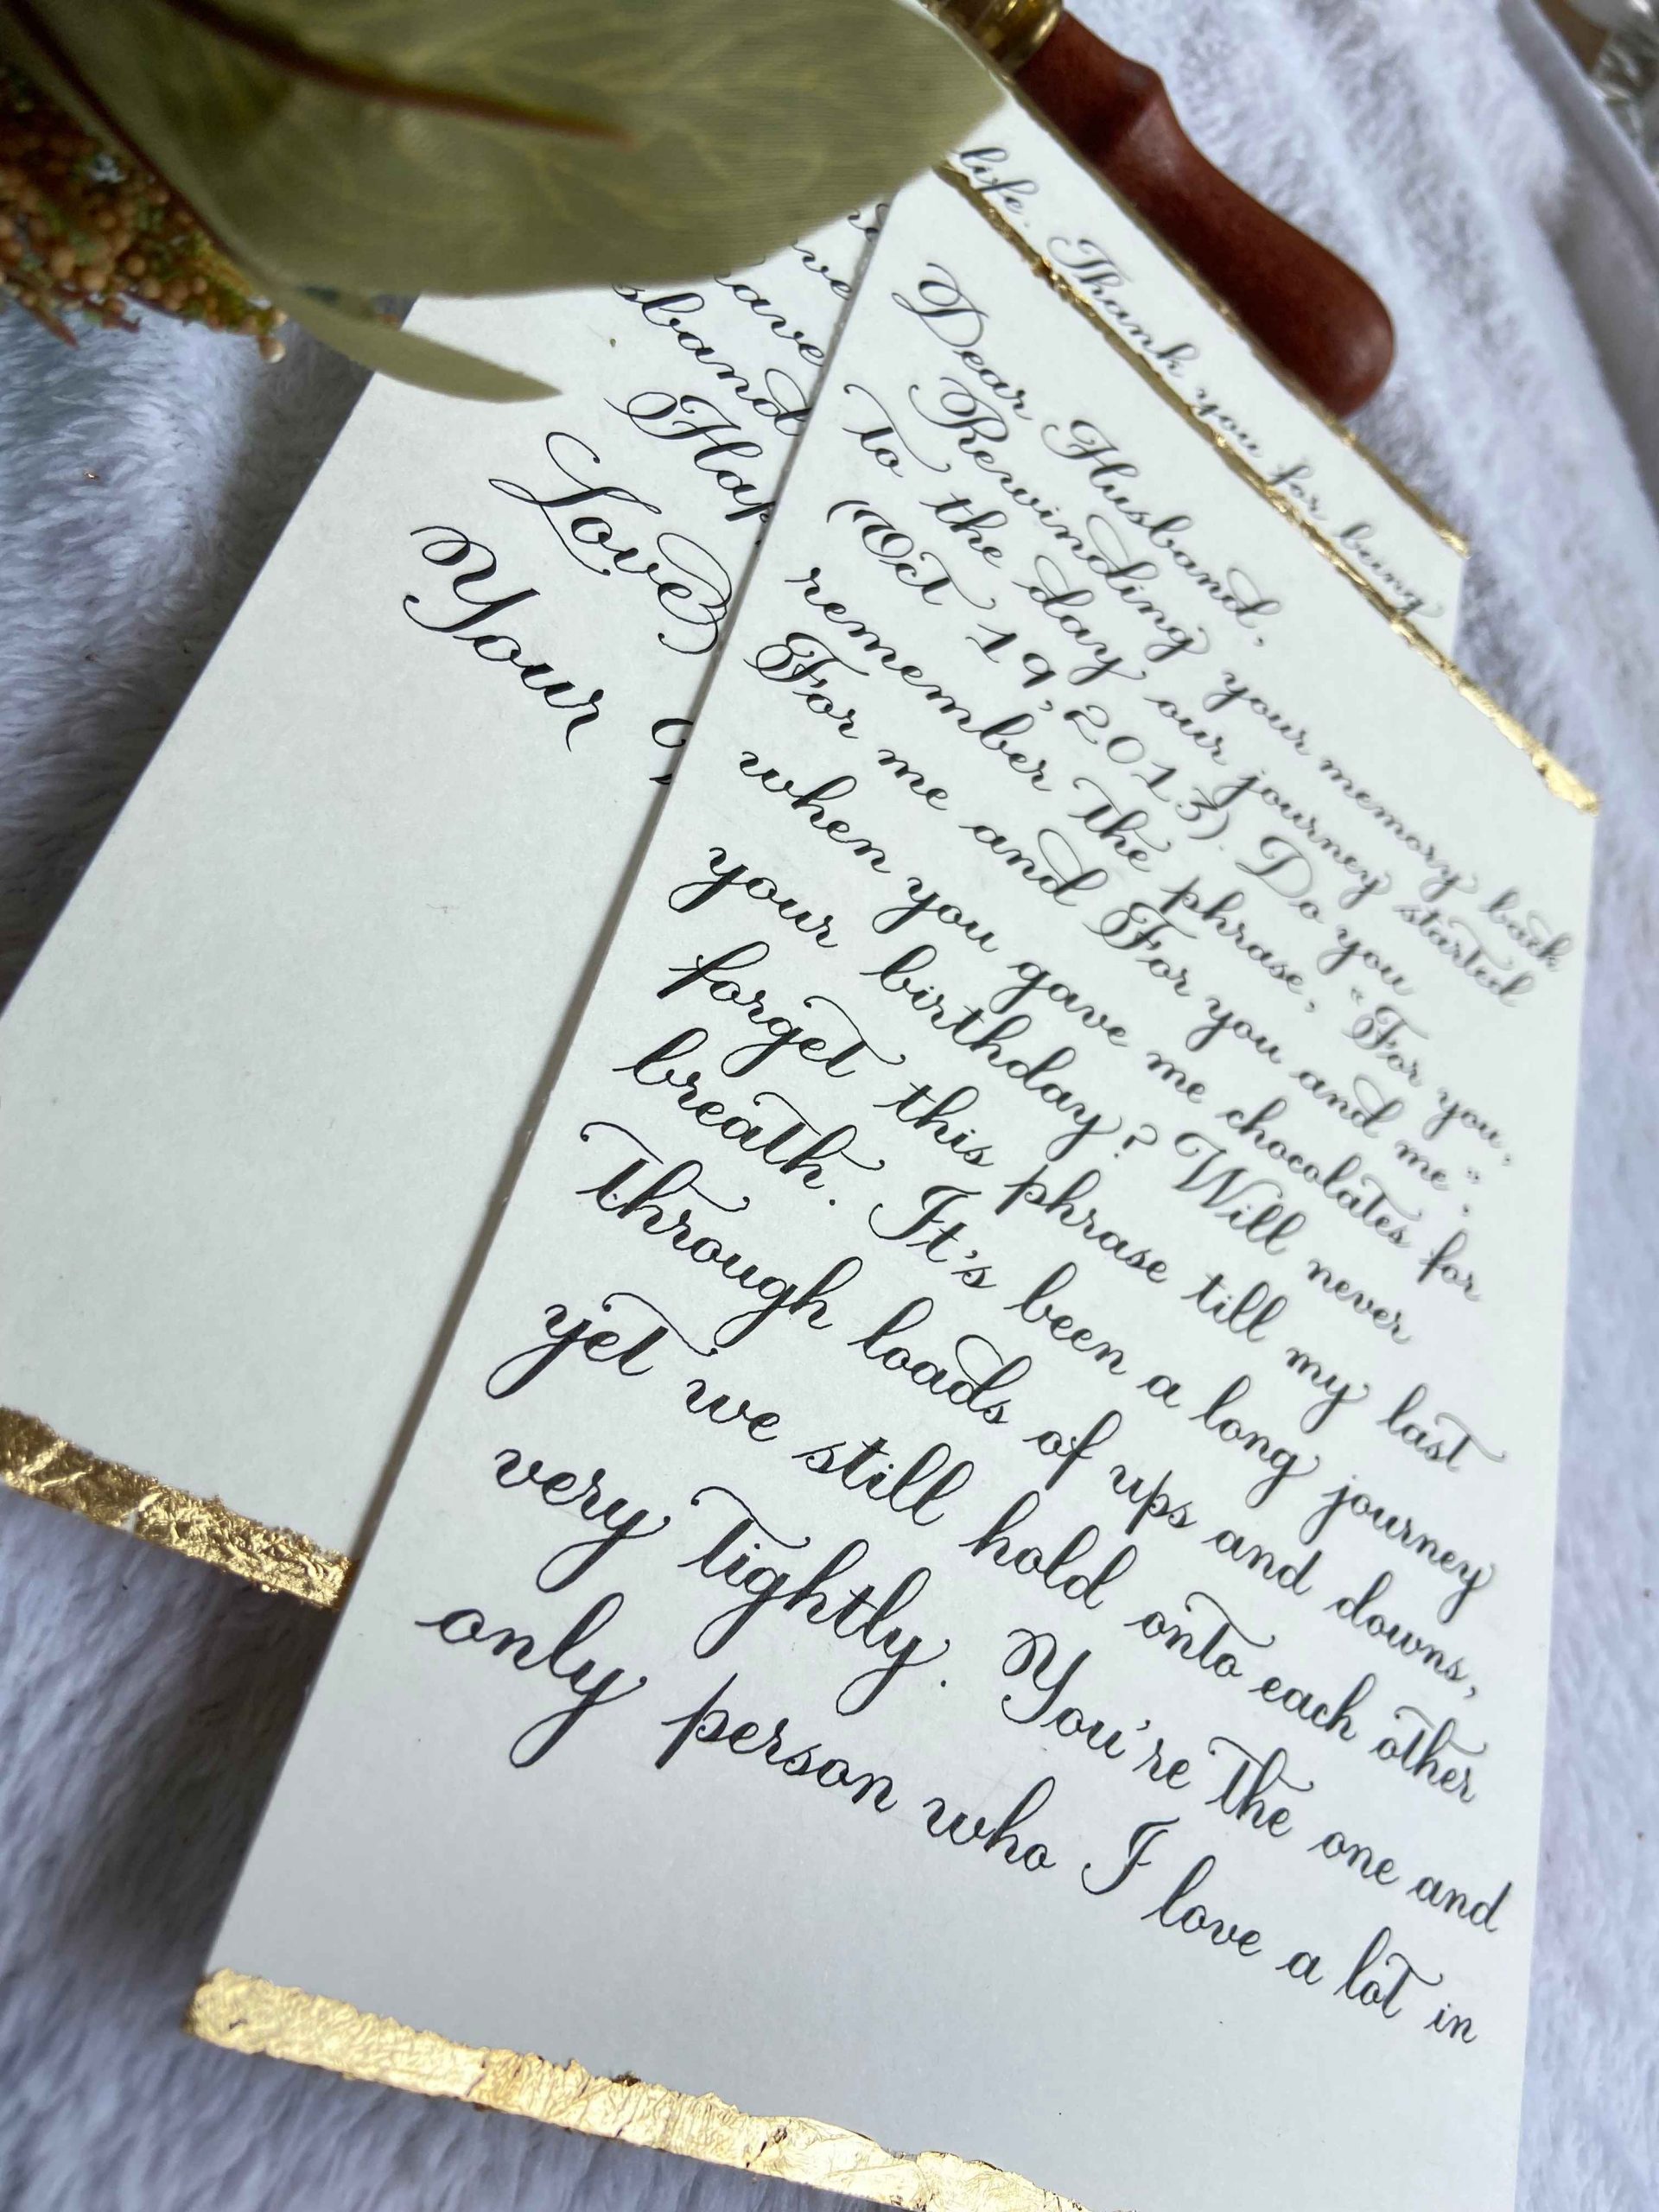 Dear Husband,
Rewinding your memory back
to the day our journey started
(Oct 19, 2013). Do you
remember the phrase, "For you,
For me and For you and me",
when you gave me chocolates for
your birthday? Will never
forget this phrase till my last
breath. It's been a long journey
through loads of ups and downs,
yet we still hold onto each other
very tightly. You're the one and
only person who I love a lot in
life. Thank you for being
Love
Your